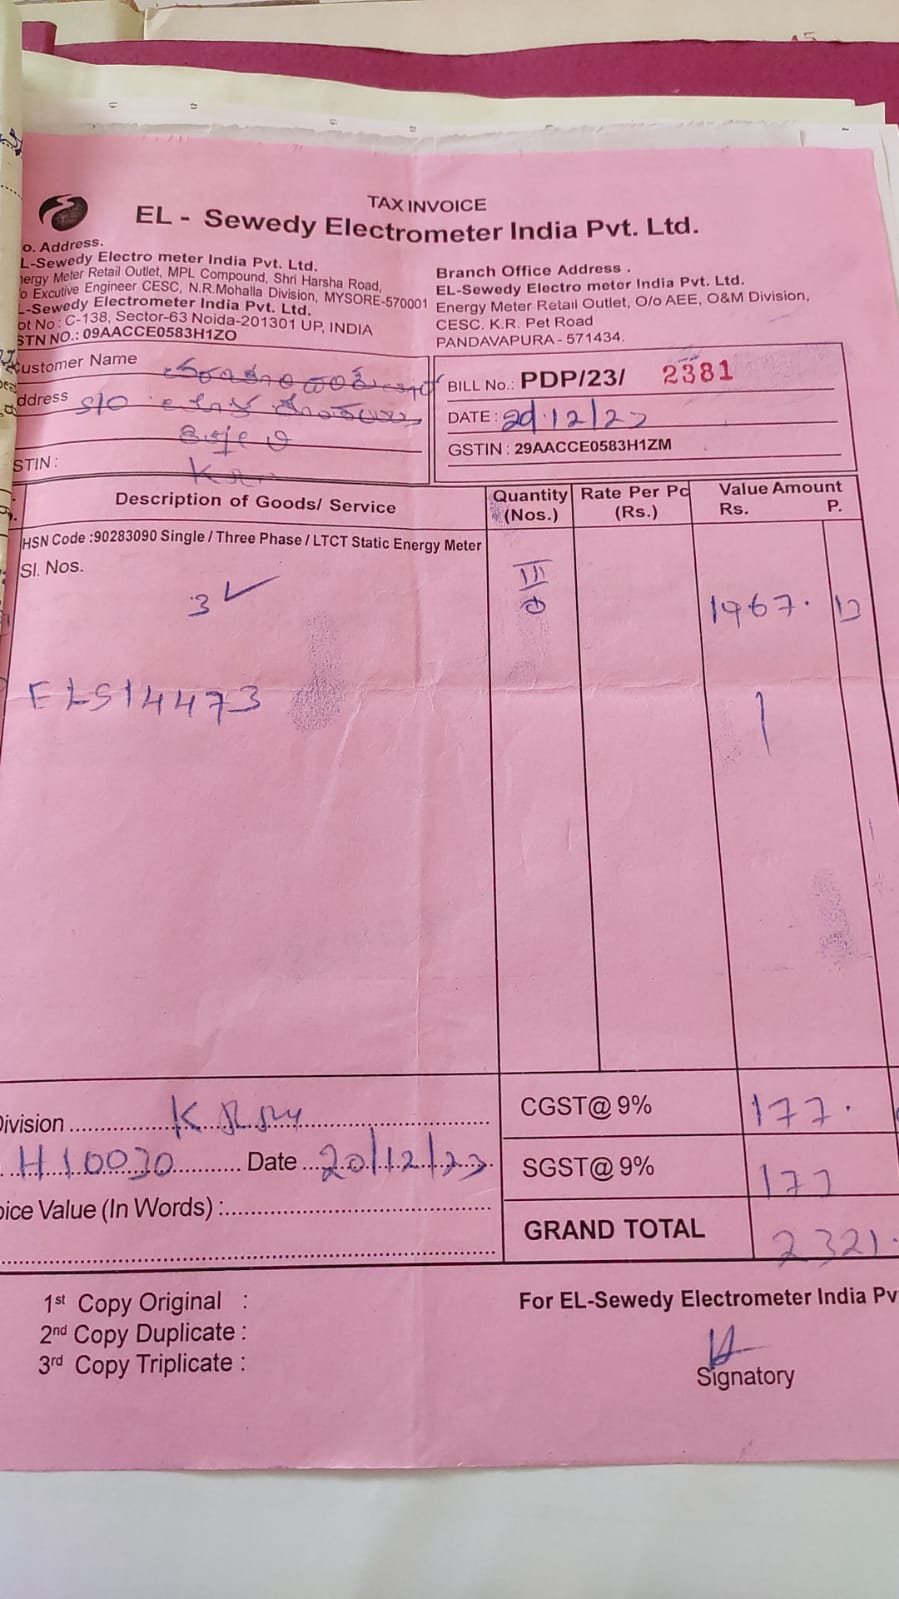 TAX INVOICE
EL - Sewedy Electrometer India Pvt. Ltd.
o. Address.
L-Sewedy Electro meter India Pvt. Ltd.
nergy Meter Retail Outlet, MPL Compound, Shri Harsha Road,
o Excutive Engineer CESC, N.R.Mohalla Division, MYSORE-570001
L-Sewedy Electrometer India Pvt. Ltd.
ot No : C-138, Sector-63 Noida-201301 UP, INDIA
STN NO.: 09AACCE0583H1ZO
Branch Office Address .
EL-Sewedy Electro meter India Pvt. Ltd.
Energy Meter Retail Outlet, O/o AEE, O&M Division,
CESC. K.R. Pet Road
PANDAVAPURA - 571434.
Customer Name
ddress S/O
STIN :
BILL No.: PDP/23/ 2381
DATE :
GSTIN : 29AACCE0583H1ZM
Description of Goods/ Service
Quantity (Nos.)
Rate Per Pc (Rs.)
Value Amount
Rs. P.
HSN Code :90283090 Single / Three Phase / LTCT Static Energy Meter
Sl. Nos.
3 ✓
1967.
ELS14473
Division
H10030 Date 20/12/23
oice Value (In Words) :
CGST@ 9% 177.
SGST@ 9% 177
GRAND TOTAL 2321.
1st Copy Original :
2nd Copy Duplicate :
3rd Copy Triplicate :
For EL-Sewedy Electrometer India Pv
Signatory